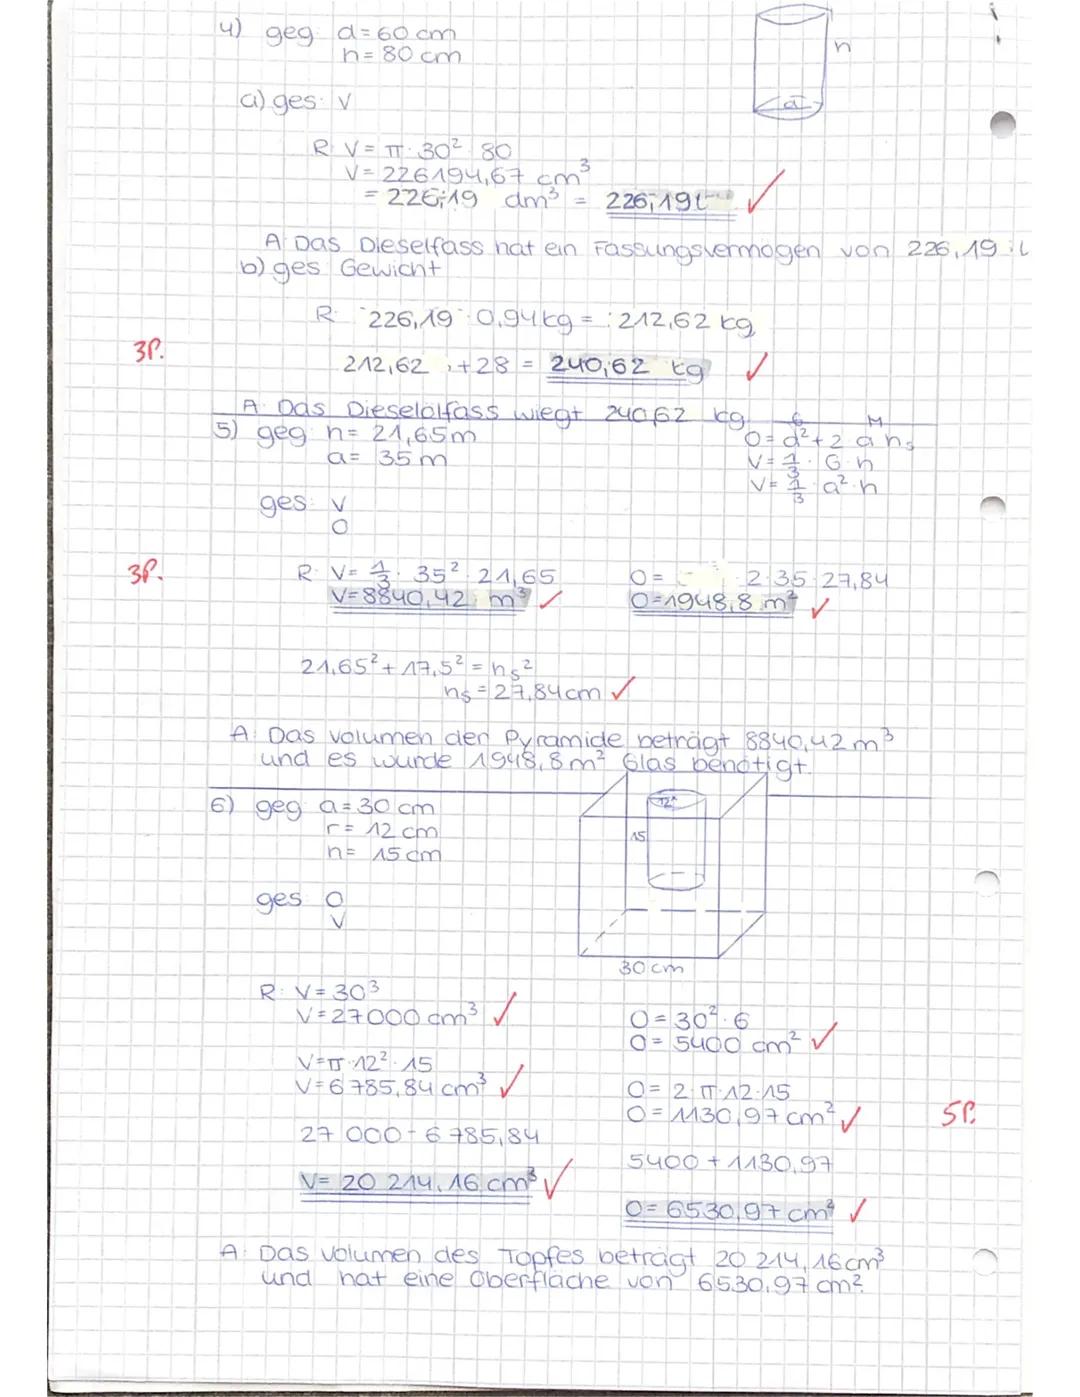 4) geg: d = 60 cm
h = 80 cm
h
d
a) ges: V
R: V = π · 30² · 80
V = 226194,67 cm³
= 226,19 dm³ = 226,19 l
A: Das Dieselfass hat ein Fassungsvermögen von 226,19 l
b) ges: Gewicht
R: 226,19 · 0,94 kg = 212,62 kg
3P.
212,62 + 28 = 240,62 kg
A: Das Dieselölfass wiegt 240,62 kg
5) geg: h = 21,65 m
a = 35 m
G M
O = a² + 2 · a · hs
V = 1/3 · G · h
V = 1/3 · a² · h
ges: V
O
3P.
R: V = 1/3 · 35² · 21,65
V = 8840,42 m³
O = 2 · 35 · 27,84
O = 1948,8 m²
21,65² + 17,5² = hs²
hs = 27,84 cm
A: Das Volumen der Pyramide beträgt 8840,42 m³
und es wurde 1948,8 m² Glas benötigt.
6) geg: a = 30 cm
r = 12 cm
h = 15 cm
12
15
30 cm
ges: O
V
R: V = 30³
V = 27000 cm³
O = 30² · 6
O = 5400 cm²
V = π · 12² · 15
V = 6785,84 cm³
O = 2 · π · 12 · 15
O = 1130,97 cm²
5P.
27 000 - 6 785,84
5400 + 1130,97
V = 20 214,16 cm³
O = 6530,97 cm²
A: Das Volumen des Topfes beträgt 20 214,16 cm³
und hat eine Oberfläche von 6530,97 cm².